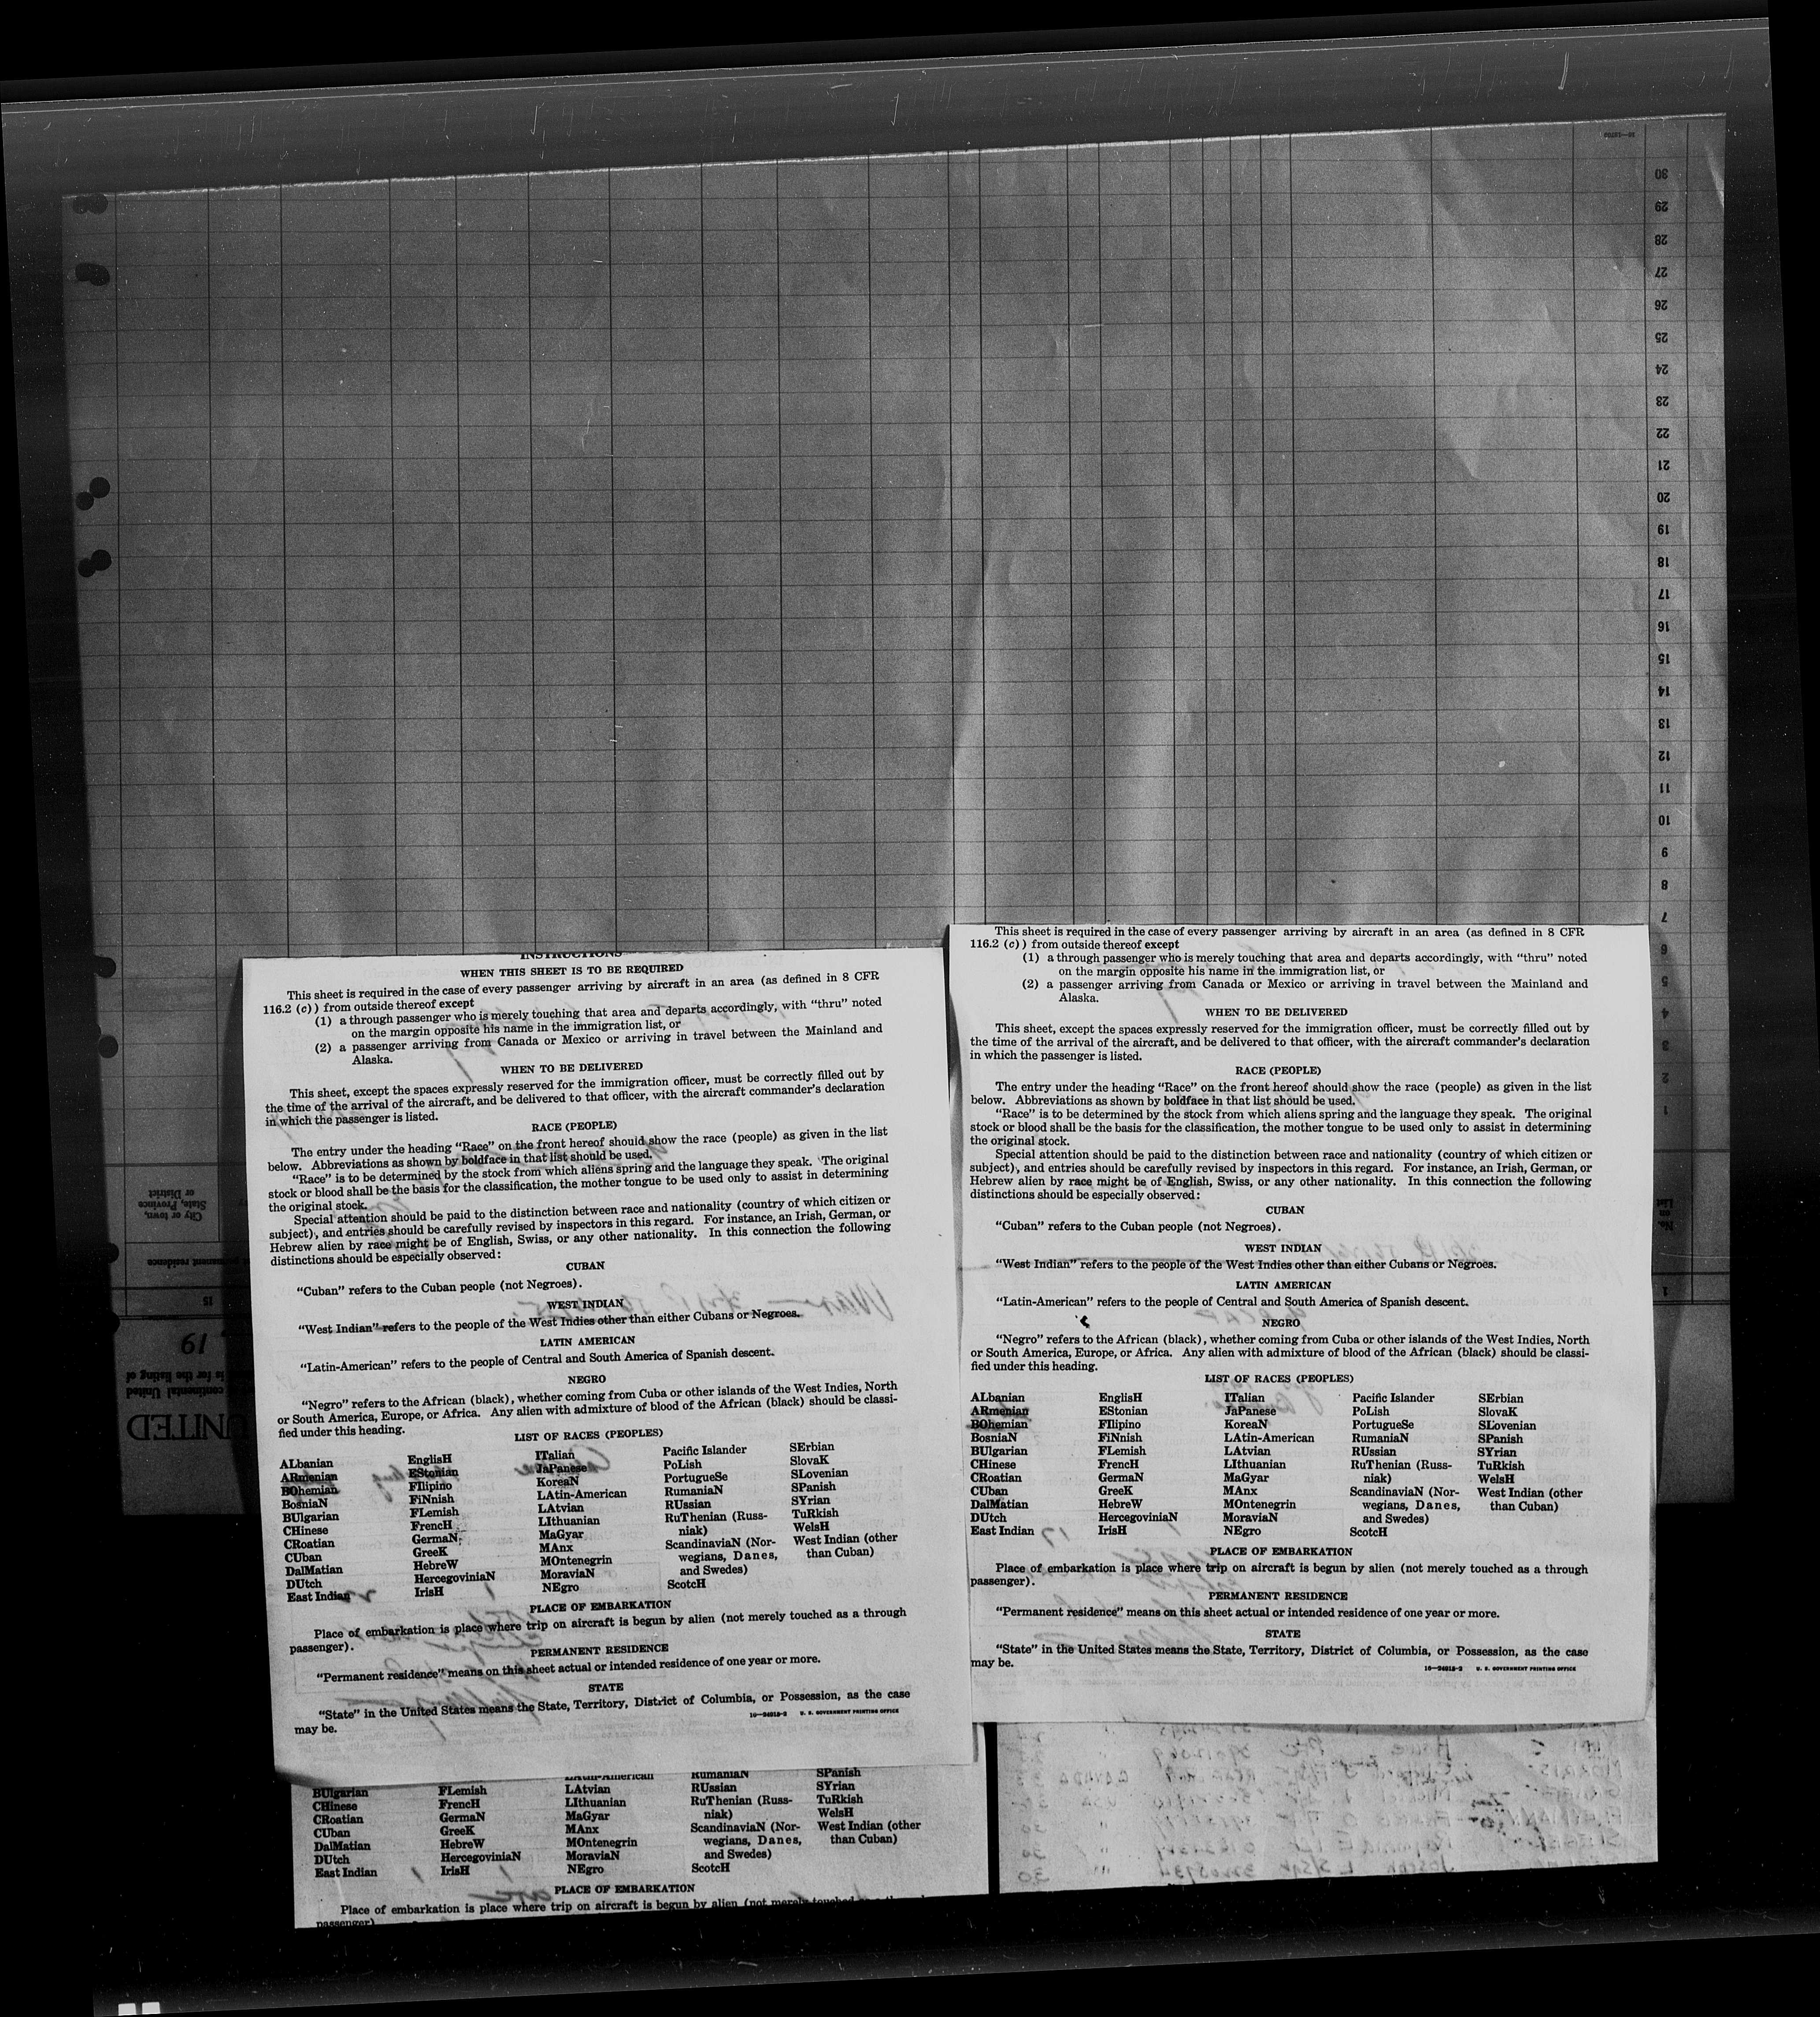 16—19703
30
29
28
27
26
25
24
23
22
21
20
19
18
17
16
15
14
13
12
11
10
9
8
7
6
5
4
3
2
1
No.
on
List
1
City or town,
State, Province
or District
permanent residence
15
19
is for the listing of
continental United
UNITED
INSTRUCTIONS
WHEN THIS SHEET IS TO BE REQUIRED
This sheet is required in the case of every passenger arriving by aircraft in an area (as defined in 8 CFR
116.2 (c)) from outside thereof except
(1) a through passenger who is merely touching that area and departs accordingly, with "thru" noted
on the margin opposite his name in the immigration list, or
(2) a passenger arriving from Canada or Mexico or arriving in travel between the Mainland and
Alaska.
WHEN TO BE DELIVERED
This sheet, except the spaces expressly reserved for the immigration officer, must be correctly filled out by
the time of the arrival of the aircraft, and be delivered to that officer, with the aircraft commander's declaration
in which the passenger is listed.
RACE (PEOPLE)
The entry under the heading "Race" on the front hereof should show the race (people) as given in the list
below. Abbreviations as shown by boldface in that list should be used.
"Race" is to be determined by the stock from which aliens spring and the language they speak. The original
stock or blood shall be the basis for the classification, the mother tongue to be used only to assist in determining
the original stock.
Special attention should be paid to the distinction between race and nationality (country of which citizen or
subject), and entries should be carefully revised by inspectors in this regard. For instance, an Irish, German, or
Hebrew alien by race might be of English, Swiss, or any other nationality. In this connection the following
distinctions should be especially observed:
CUBAN
"Cuban" refers to the Cuban people (not Negroes).
WEST INDIAN
"West Indian" refers to the people of the West Indies other than either Cubans or Negroes.
LATIN AMERICAN
"Latin-American" refers to the people of Central and South America of Spanish descent.
NEGRO
"Negro" refers to the African (black), whether coming from Cuba or other islands of the West Indies, North
or South America, Europe, or Africa. Any alien with admixture of blood of the African (black) should be classi-
fied under this heading.
LIST OF RACES (PEOPLES)
ALbanian
ARmenian
BOhemian
BosniaN
BUlgarian
CHinese
CRoatian
CUban
DalMatian
DUtch
East Indian
EnglisH
EStonian
FIlipino
FiNnish
FLemish
FrencH
GermaN
GreeK
HebreW
HercegoviniaN
IrisH
ITalian
JaPanese
KoreaN
LAtin-American
LAtvian
LIthuanian
MaGyar
MAnx
MOntenegrin
MoraviaN
NEgro
Pacific Islander
PoLish
PortugueSe
RumaniaN
RUssian
RuThenian (Russ-
niak)
ScandinaviaN (Nor-
wegians, Danes,
and Swedes)
ScotcH
SErbian
SlovaK
SLovenian
SPanish
SYrian
TuRkish
WelsH
West Indian (other
than Cuban)
PLACE OF EMBARKATION
Place of embarkation is place where trip on aircraft is begun by alien (not merely touched as a through
passenger).
PERMANENT RESIDENCE
"Permanent residence" means on this sheet actual or intended residence of one year or more.
STATE
"State" in the United States means the State, Territory, District of Columbia, or Possession, as the case
may be.
16—24918-2 U. S. GOVERNMENT PRINTING OFFICE
This sheet is required in the case of every passenger arriving by aircraft in an area (as defined in 8 CFR
116.2 (c)) from outside thereof except
(1) a through passenger who is merely touching that area and departs accordingly, with "thru" noted
on the margin opposite his name in the immigration list, or
(2) a passenger arriving from Canada or Mexico or arriving in travel between the Mainland and
Alaska.
WHEN TO BE DELIVERED
This sheet, except the spaces expressly reserved for the immigration officer, must be correctly filled out by
the time of the arrival of the aircraft, and be delivered to that officer, with the aircraft commander's declaration
in which the passenger is listed.
RACE (PEOPLE)
The entry under the heading "Race" on the front hereof should show the race (people) as given in the list
below. Abbreviations as shown by boldface in that list should be used.
"Race" is to be determined by the stock from which aliens spring and the language they speak. The original
stock or blood shall be the basis for the classification, the mother tongue to be used only to assist in determining
the original stock.
Special attention should be paid to the distinction between race and nationality (country of which citizen or
subject), and entries should be carefully revised by inspectors in this regard. For instance, an Irish, German, or
Hebrew alien by race might be of English, Swiss, or any other nationality. In this connection the following
distinctions should be especially observed:
CUBAN
"Cuban" refers to the Cuban people (not Negroes).
WEST INDIAN
"West Indian" refers to the people of the West Indies other than either Cubans or Negroes.
LATIN AMERICAN
"Latin-American" refers to the people of Central and South America of Spanish descent.
NEGRO
"Negro" refers to the African (black), whether coming from Cuba or other islands of the West Indies, North
or South America, Europe, or Africa. Any alien with admixture of blood of the African (black) should be classi-
fied under this heading.
LIST OF RACES (PEOPLES)
ALbanian
ARmenian
BOhemian
BosniaN
BUlgarian
CHinese
CRoatian
CUban
DalMatian
DUtch
East Indian
EnglisH
EStonian
FIlipino
FiNnish
FLemish
FrencH
GermaN
GreeK
HebreW
HercegoviniaN
IrisH
ITalian
JaPanese
KoreaN
LAtin-American
LAtvian
LIthuanian
MaGyar
MAnx
MOntenegrin
MoraviaN
NEgro
Pacific Islander
PoLish
PortugueSe
RumaniaN
RUssian
RuThenian (Russ-
niak)
ScandinaviaN (Nor-
wegians, Danes,
and Swedes)
ScotcH
SErbian
SlovaK
SLovenian
SPanish
SYrian
TuRkish
WelsH
West Indian (other
than Cuban)
PLACE OF EMBARKATION
Place of embarkation is place where trip on aircraft is begun by alien (not merely touched as a through
passenger).
PERMANENT RESIDENCE
"Permanent residence" means on this sheet actual or intended residence of one year or more.
STATE
"State" in the United States means the State, Territory, District of Columbia, or Possession, as the case
may be.
16—24918-2 U. S. GOVERNMENT PRINTING OFFICE
BUlgarian
CHinese
CRoatian
CUban
DalMatian
DUtch
East Indian
FLemish
FrencH
GermaN
GreeK
HebreW
HercegoviniaN
IrisH
LAtin-American
LAtvian
LIthuanian
MaGyar
MAnx
MOntenegrin
MoraviaN
NEgro
RumaniaN
RUssian
RuThenian (Russ-
niak)
ScandinaviaN (Nor-
wegians, Danes,
and Swedes)
ScotcH
SPanish
SYrian
TuRkish
WelsH
West Indian (other
than Cuban)
PLACE OF EMBARKATION
Place of embarkation is place where trip on aircraft is begun by alien (not merely touched
passenger)